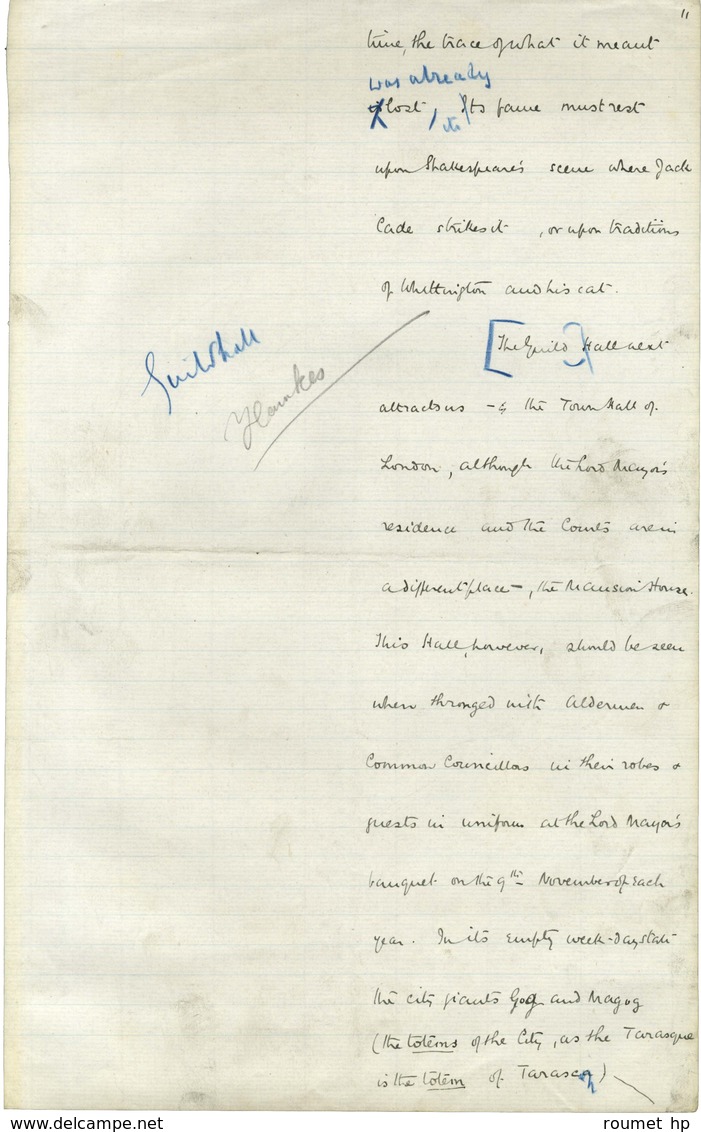 11
time, the trace of what it meant
was already
is lost, its Its fame must rest
upon Shakespeare's scene where Jack
Cade strikes it, or upon traditions
of Whittington and his cat.
[The Guild) Hall next
Guildhall
Hawkes
attracts us - is the Town Hall of
London, although the Lord Mayor's
residence and the Courts are in
a different place -, the Mansion House.
This Hall, however, should be seen
when thronged with Aldermen &
Common Councillors in their robes &
guests in uniform at the Lord Mayor's
banquet on the 9th November of Each
year. In its empty week-day state
the city giants Gog and Magog
(the totems of the City, as the Tarasque
is the totem of Tarascon)
roumet hp